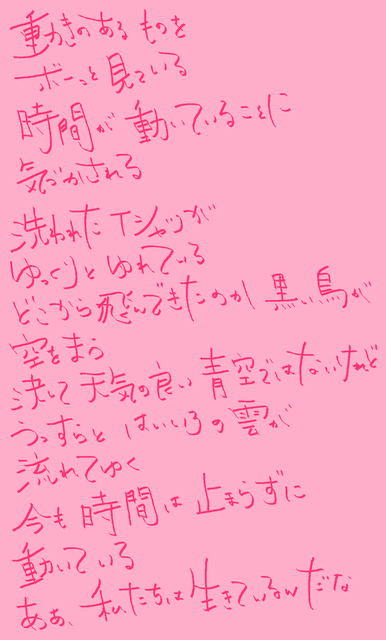 動きのあるものを
ボーっと見ている
時間が動いていることに
気づかされる
洗われたTシャツが
ゆっくりとゆれている
どこから飛んできたのか黒い鳥が
空をまう
決して天気の良い青空ではないけれど
うっすらとはいいろの雲が
流れてゆく
今も時間は止まらずに
動いている
ああ、私たちは生きているんだな